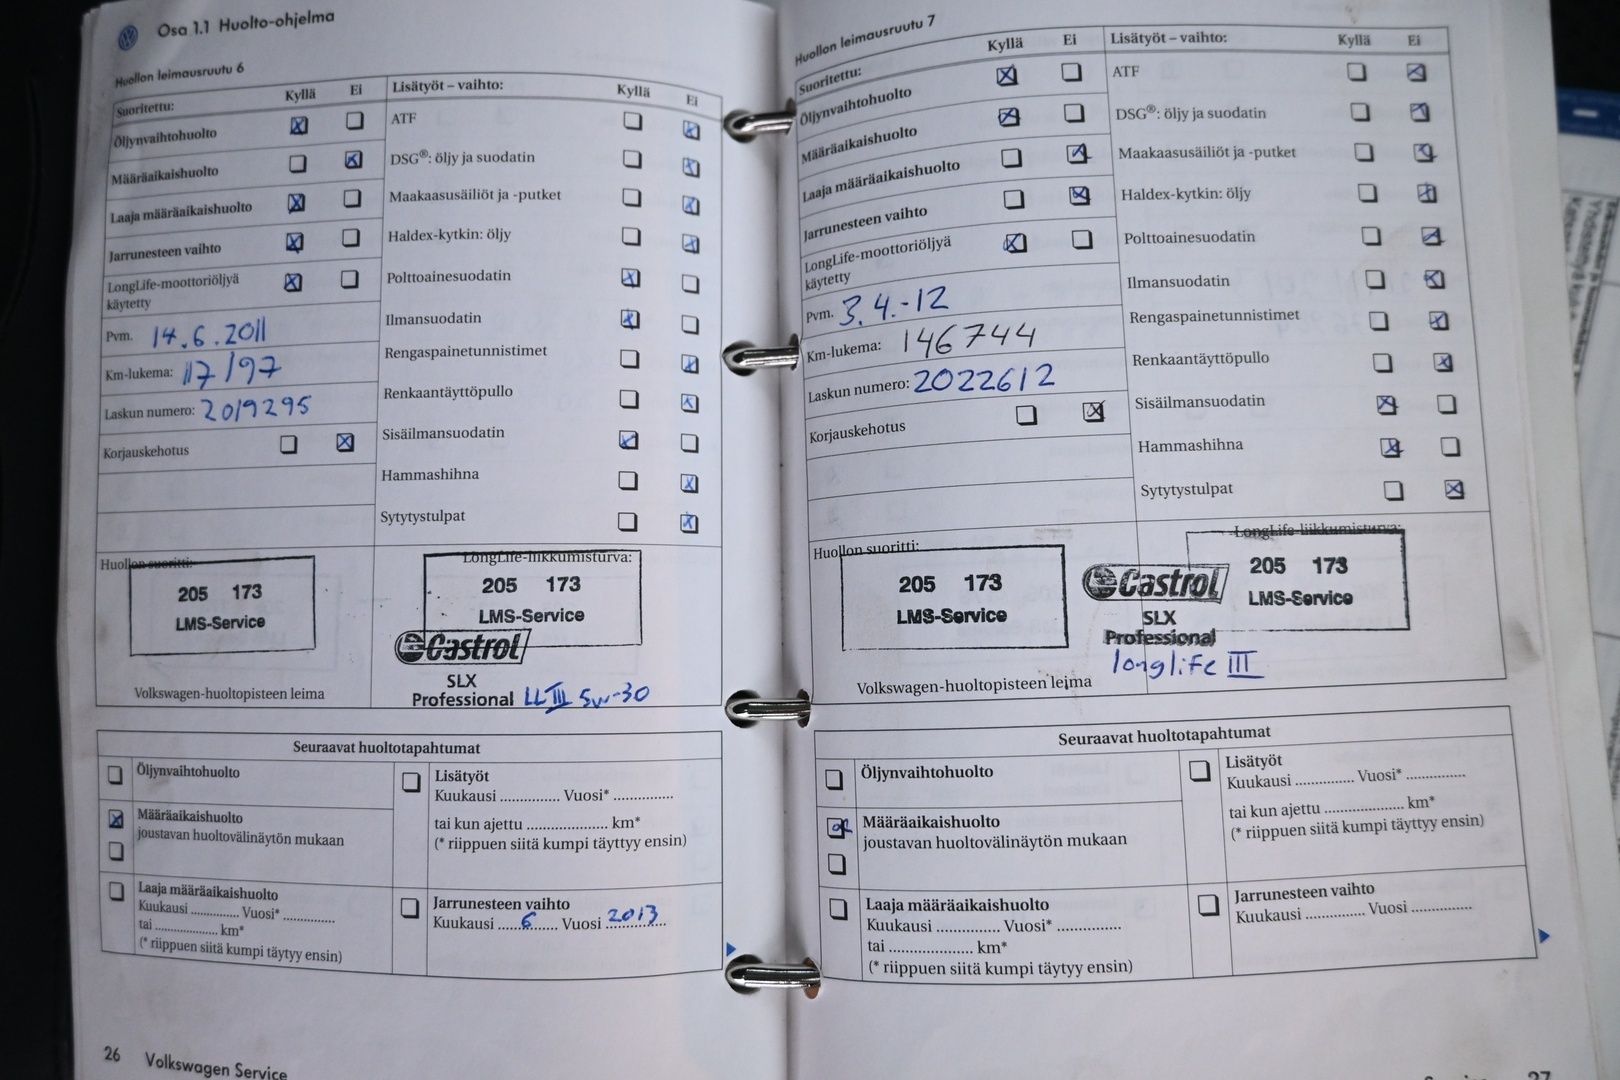 Osa 1.1 Huolto-ohjelma
Huollon leimausruutu 6
Suoritettu: Kyllä Ei
Öljynvaihtohuolto
Määräaikaishuolto
Laaja määräaikaishuolto
Jarrunesteen vaihto
LongLife-moottoriöljyä
käytetty
Pvm. 14.6.2011
Km-lukema: 117197
Laskun numero: 2019295
Korjauskehotus
Lisätyöt – vaihto: Kyllä Ei
ATF
DSG®: öljy ja suodatin
Maakaasusäiliöt ja -putket
Haldex-kytkin: öljy
Polttoainesuodatin
Ilmansuodatin
Rengaspainetunnistimet
Renkaantäyttöpullo
Sisäilmansuodatin
Hammashihna
Sytytystulpat
Huollon suoritti:
205 173
LMS-Service
Volkswagen-huoltopisteen leima
LongLife-liikkumisturva:
205 173
LMS-Service
Castrol
SLX
Professional LL III 5w-30
Seuraavat huoltotapahtumat
Öljynvaihtohuolto
Määräaikaishuolto
joustavan huoltovälinäytön mukaan
Laaja määräaikaishuolto
Kuukausi .............. Vuosi* ..............
tai .................... km*
(* riippuen siitä kumpi täytyy ensin)
Lisätyöt
Kuukausi .............. Vuosi* ..............
tai kun ajettu .................... km*
(* riippuen siitä kumpi täyttyy ensin)
Jarrunesteen vaihto
Kuukausi ...6... Vuosi 2013
26 Volkswagen Service
Huollon leimausruutu 7
Suoritettu: Kyllä Ei
Öljynvaihtohuolto
Määräaikaishuolto
Laaja määräaikaishuolto
Jarrunesteen vaihto
LongLife-moottoriöljyä
käytetty
Pvm. 3.4.-12
Km-lukema: 146744
Laskun numero: 2022612
Korjauskehotus
Lisätyöt – vaihto: Kyllä Ei
ATF
DSG®: öljy ja suodatin
Maakaasusäiliöt ja -putket
Haldex-kytkin: öljy
Polttoainesuodatin
Ilmansuodatin
Rengaspainetunnistimet
Renkaantäyttöpullo
Sisäilmansuodatin
Hammashihna
Sytytystulpat
Huollon suoritti:
205 173
LMS-Service
Volkswagen-huoltopisteen leima
LongLife-liikkumisturva:
205 173
LMS-Service
Castrol
SLX
Professional
longlife III
Seuraavat huoltotapahtumat
Öljynvaihtohuolto
Määräaikaishuolto
joustavan huoltovälinäytön mukaan
Laaja määräaikaishuolto
Kuukausi .............. Vuosi* ..............
tai .................... km*
(* riippuen siitä kumpi täytyy ensin)
Lisätyöt
Kuukausi .............. Vuosi* ..............
tai kun ajettu .................... km*
(* riippuen siitä kumpi täyttyy ensin)
Jarrunesteen vaihto
Kuukausi .............. Vuosi ..............
27